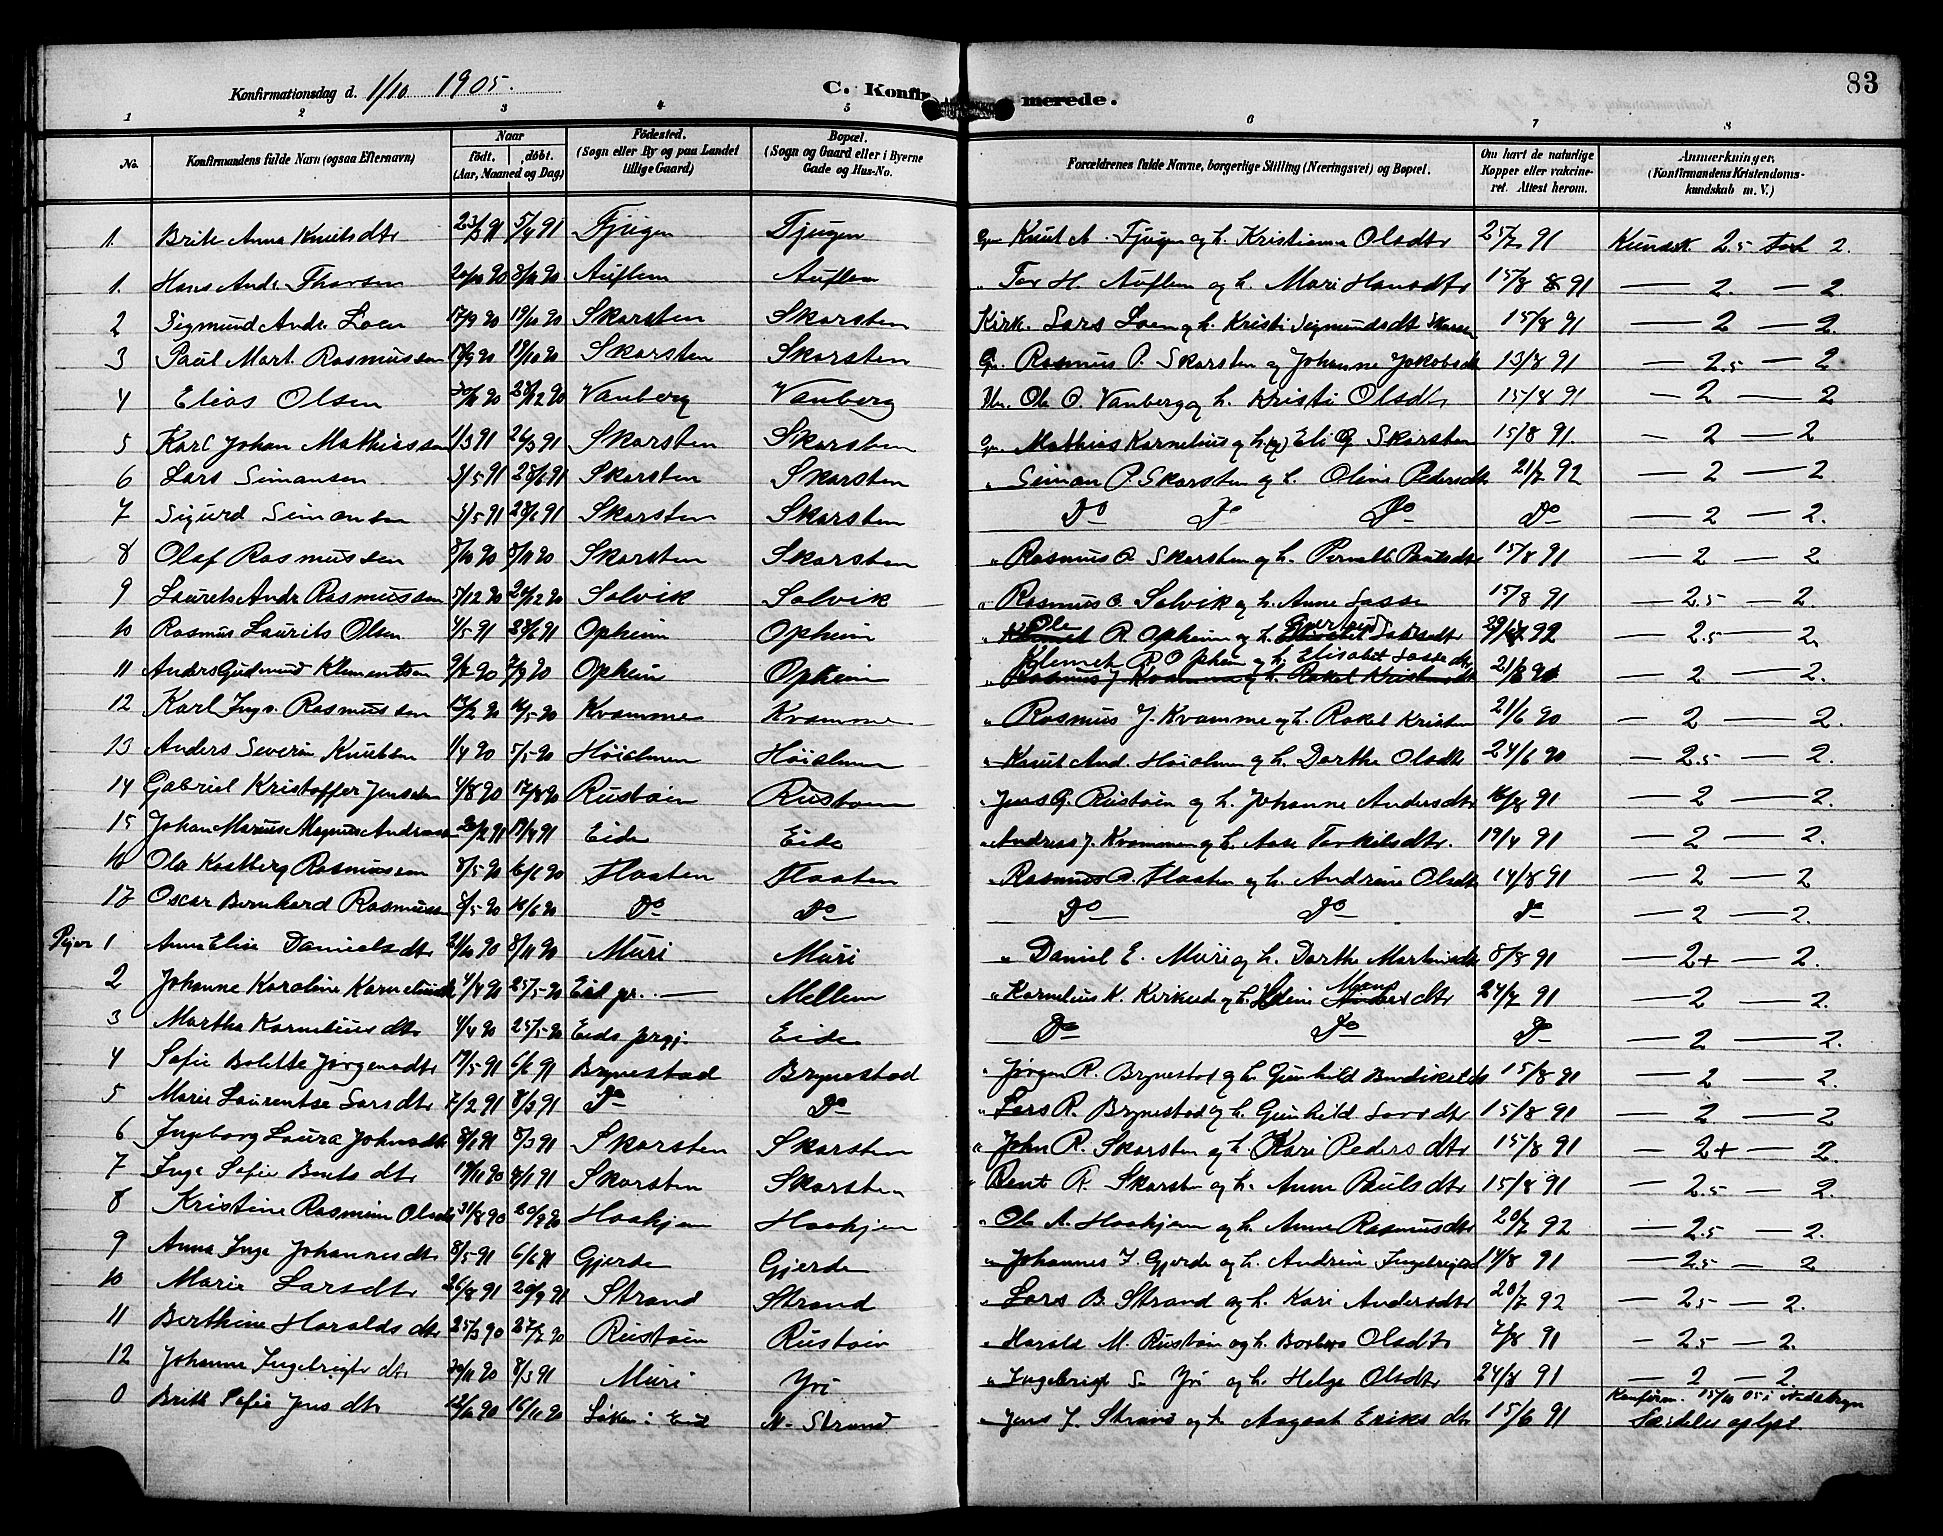 Konfirmationsdag d. 1/10 1905. C. Konfirmerede. 83
1 2 3 4 5 6 7 8
No. Konfirmandens fulde Navn (ogsaa Efternavn) Naar født. døbt. (Aar, Maaned og Dag) Fødested. (Sogn eller By og paa Landet tillige Gaard) Bopæl. (Sogn og Gaard eller i Byerne Gade og Hus-No. Forældrenes fulde Navne, borgerlige Stilling (Næringsvei) og Bopæl. Om havt de naturlige Kopper eller vakcineret. Attest herom. Anmærkninger. (Konfirmandens Kristendomskundskab m. V.)
1. Brite Anna Knutsdtr 23/3 91 5/4 91 Tjugen Tjugen Knut A. Tjugen og h. Kristianna Olsdtr 25/7 91 Kundsk 2.5 2.
1. Hans Andr. Thorsen 20/10 90 8/11 90 Auflem Auflem " Tor H. Auflem og h. Mari Hansdtr 15/8 91 — 2. — 2.
2 Sigmund Andr. Loen 17/9 90 19/10 90 Skarsten Skarsten Kirk. Lars Loen og h. Kristi Sigmundsdt 15/8 91 — 2 — 2.
3 Paul Mart. Rasmussen 19/10 90 Skarsten Skarsten Rasmus P. Skarsten og Johanne Jakobsdt 13/8 91 — 2.5 — 2
4 Elias Olsen 90 28/12 90 Vanberg Vanberg Ole O. Vanberg og h. Kristi Olsdtr 15/8 91 — 2 — 2
5 Karl Johan Mathiassen 1/3 91 26/3 91 Skarsten Skarsten Mathias Kornelius og h. Eli Skarsten 15/8 91. — 2 — 2
6 Lars Simonsen 3/5 91 28/6 91 Skarsten Skarsten " Simon P. Skarsten og h. Oline Pedersdt 21/7 92 — 2 — 2
7 Sigurd Simonsen 3/5 91 28/6 91 Skarsten Skarsten Do Do Do Do — 2 — 2.
8 Olaf Rasmussen 8/10 90 8/11 90 Skarsten Skarsten " Rasmus O. Skarsten og h. Pernille Paulsdtr 15/8 91 — 2 — 2
9 Laurits Andr. Rasmussen 5/12 90 26/12 90 Solvik Solvik " Rasmus O. Solvik og h. Anne Lasse 15/8 91 — 2.5 — 2.
10 Rasmus Laurits Olsen 4/5 91 28/6 91 Opheim Opheim " Ole R. Opheim og h. Larsdtr 92 — 2.5 — 2.
11 Anders Gudmund Klementsen 90 7/9 90 Opheim Opheim Klemet R. Opheim og h. Elisabet Lassedtr " Rasmus J. Kvamme og h. Rakel Kristensdt 21/8 91 — 2 — 2.
12 Karl Ingv. Rasmussen 90 16/5 90 Kvamme Kvamme " Rasmus J. Kvamme og h. Rakel Kristen 21/6 90 — 2 — 2.
13 Anders Severin Knutsen 1/4 90 5/5 90 Høialmen Høialmen " Knut And. Høialmen og h. Dorthe Olsdtr 24/6 90 — 2.5 — 2.
14 Gabriel Kristoffer Jensen 4/8 90 17/8 90 Rustøen Rustøen " Jens G. Rustøen og h. Johanne Andersdtr 16/8 91 — 2 — 2.
15 Johan Marius Magnus Andreassen 20/2 91 19/4 91 Eide Eide " Andreas J. Kvamme og h. Aase Torkilsdtr. 19/4 91 — 2 — 2.
16 Ole Kastberg Rasmussen 8/5 90 6/6 90 Flaaten Flaaten " Rasmus O. Flaaten og h. Andrine Olsdtr 14/8 91 — 2 — 2
17 Oscar Bernhard Rasmussen 8/5 90 6/6 90 Do Do Do Do Do — 2 — 2.
Piger 1 Anna Elise Danielsdtr 90 8/11 90 Muri Muri " Daniel E. Muri og h. Dorthe Martinsdtr 8/8 91 — 2+ — 2.
2 Johanne Karoline Korneliusdtr 4/4 90 25/5 90 Eid pr. — Mellem " Kornelius K. Kirkeide og h. 24/7 91 — 2 — 2.
3 Martha Korneliusdtr 4/4 90 25/5 90 Eids prgj. Eide Do Do Do — 2 — 2.
4 Sofie Bolette Jørgensdtr 17/5 91 6/6 91 Brynestad Brynestad " Jørgen R. Brynestad og h. Gunhild Bendiksdtr 15/8 91 — 2 — 2.
5 Marie Laurentse Larsdtr 7/2 91 8/3 91 Do Do " Lars R. Brynestad og h. Gunhild Larsdtr 15/8 91 — 2 — 2
6 Ingeborg Laura Johnsdtr 8/1 91 8/3 91 Skarsten Skarsten " John R. Skarsten og h. Kari Pedersdtr 15/8 91 — 2+ — 2.
7 Inga Sofie Bentsdtr 19/11 90 8/1 91 Skarsten Skarsten " Bent R. Skarsten og h. Anne Paulsdtr 15/8 91 — 2.5 — 2.
8 Kristine Rasmine Olsdtr 31/8 90 20/9 90 Haahjem Haahjem " Ole A. Haahjem og h. Anne Rasmusdtr 20/7 92 — 2.5 — 2.
9 Anna Inga Johannesdtr 8/5 91 6/6 91 Gjerde Gjerde " Johannes I. Gjerde og h. Andrine Ingebrigtsd 14/8 91 — 2.5 — 2
10 Marie Larsdtr 26/8 91 20/9 91 Strand Strand " Lars B. Strand og h. Kari Andersdtr 20/7 92 — 2.5 — 2.
11 Berthine Haraldsdtr 25/3 90 27/7 90 Rustøen Rustøen " Harald M. Rustøen og h. Barbro Olsdtr 7/8 91 — 2.5 — 2.
12 Johanne Ingebrigtsdtr 20/11 90 8/3 91 Muri Yri " Ingebrigt S. Yri og h. Helge Olsdtr 24/8 91 — 2 — 2.
0 Britt Sofie Jensdtr 12/6 90 16/11 90 Løken i Eid N. Strand " Jens J. Strand og h. Aagaat Eriksdtr 15/6 91 Konfirm. 15/10 05 i Nedstryn Særdeles oplyst.